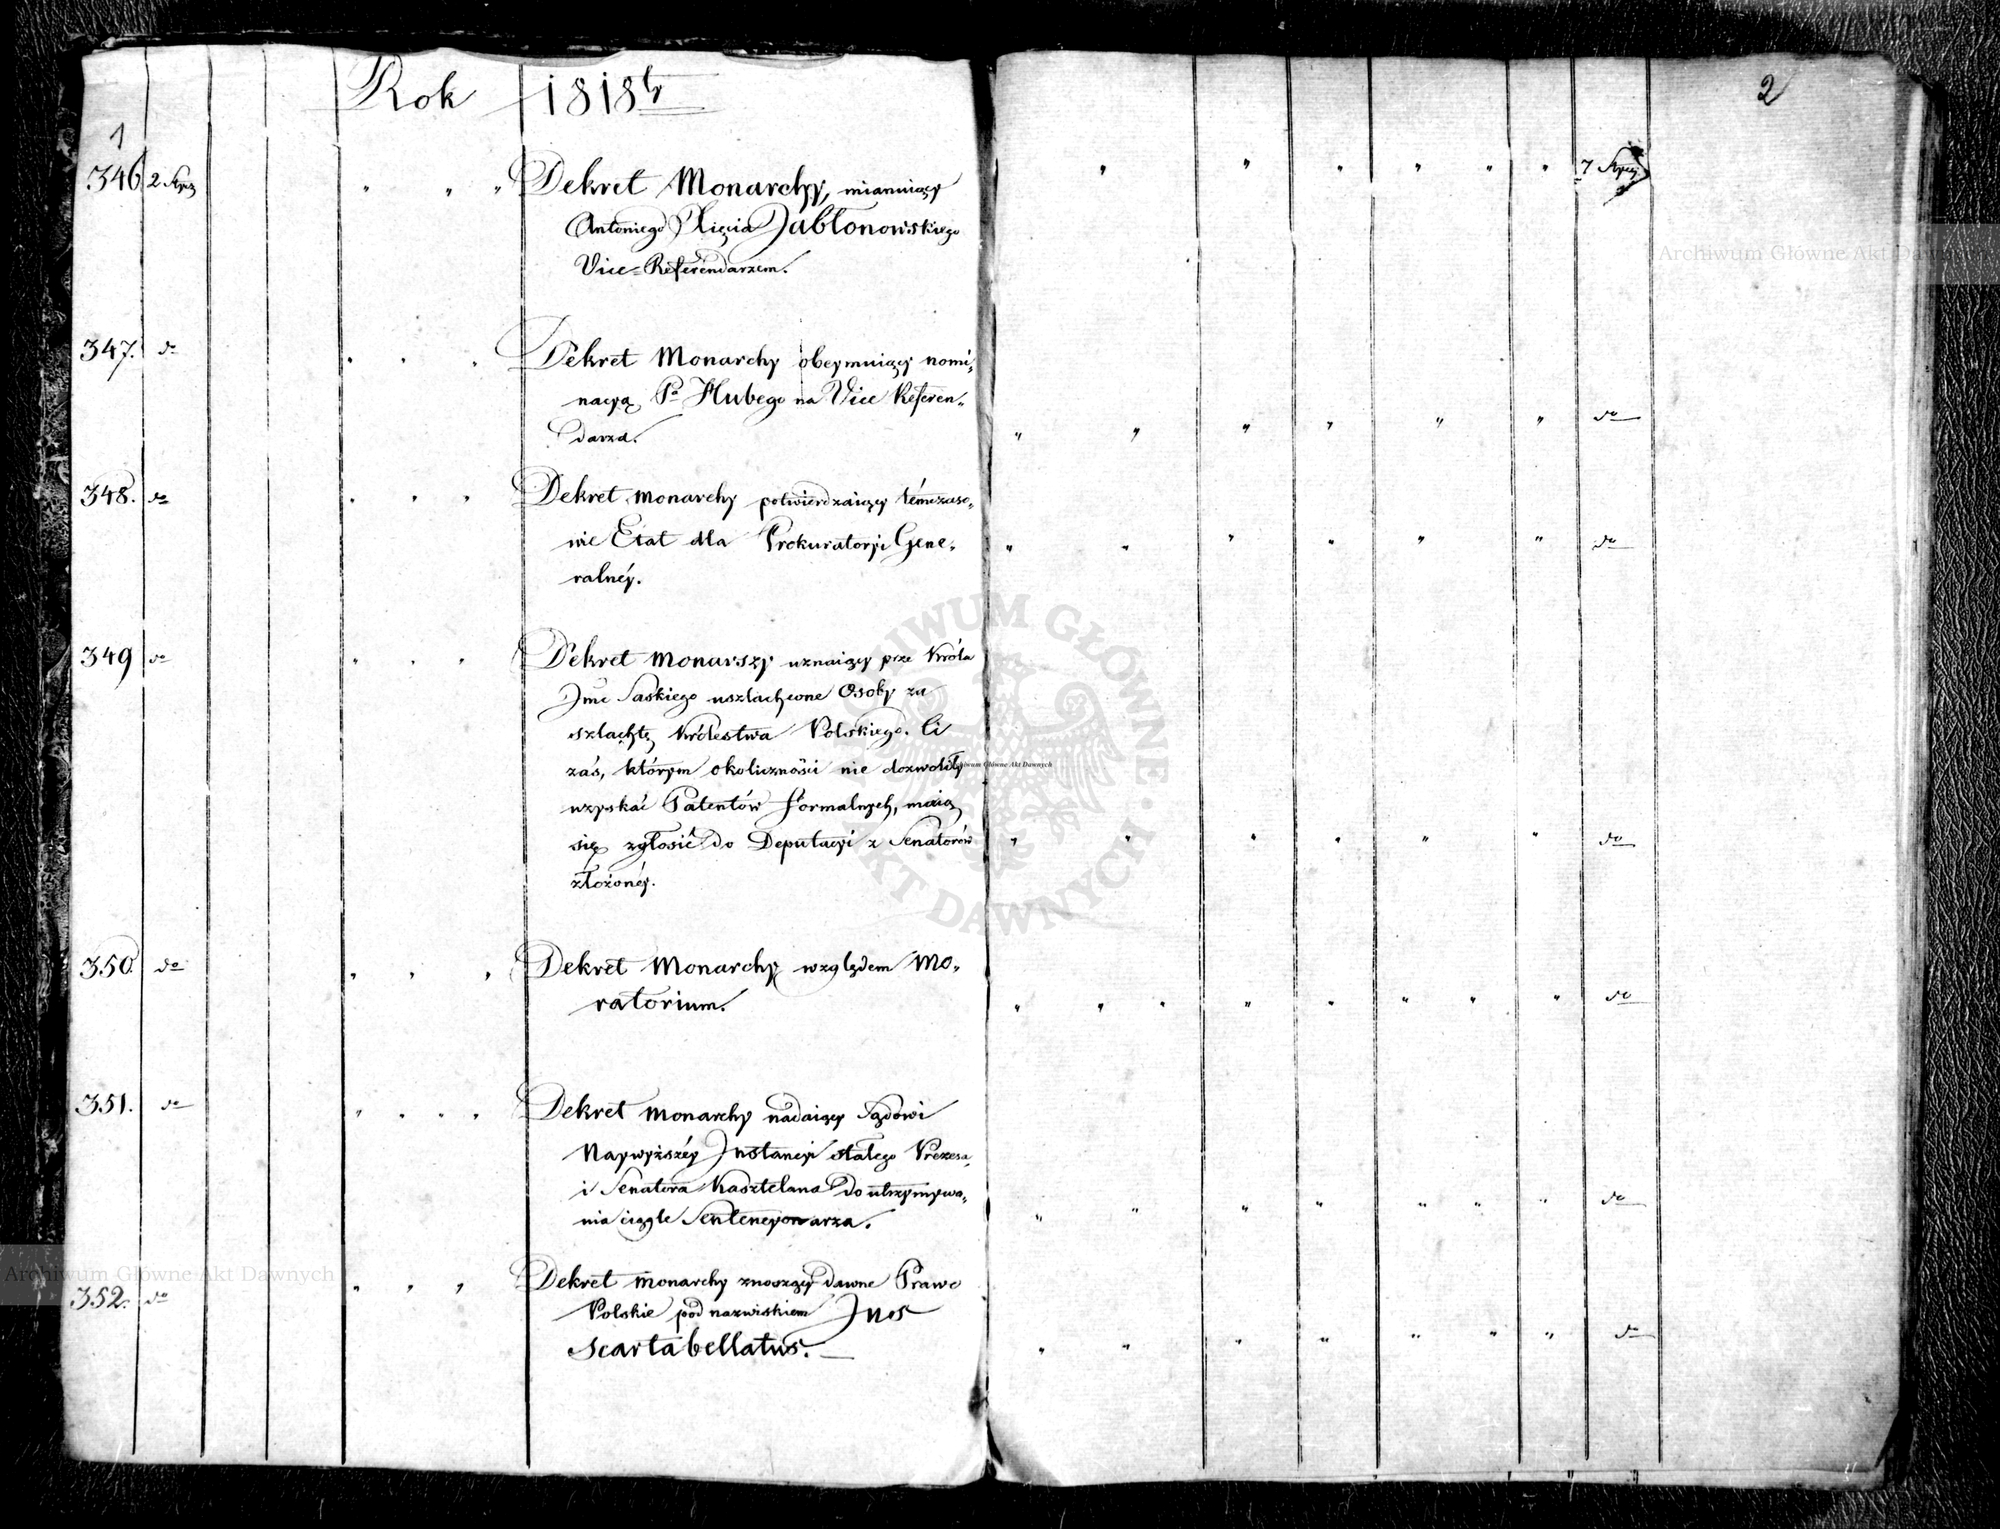 Rok 1818ty
2
1
346 2 Stycz " " " Dekret Monarchy, mianuiący " " " " " " 7 Stycz
Antoniego Xięcia Jabłonowskiego
Vice=Referendarzem.
347. do " " " Dekret Monarchy obeymuiący nomi,
nacyą Pa Hubego na Vice Referen,,
darza. " " " " " " do
348. do " " " Dekret Monarchy potwierdzaiący témczaso,
wie Etat dla Prokuratoryi Gene, " " " " " " do
ralnéy.
349 do " " " Dekret Monarszy uznaiący prze Króla
Jmć Saskiego uszlachcone Osoby za
szlachtę Królestwa Polskiego. Ci
zaś, którym okoliczności nie dozwoliły
uzyskać Patentów formalnych, maią
się zgłosić do Deputacyi z Senatorów " " " " " " do
złożonéy.
350 do " " " Dekret Monarchy względem Mo,
ratorium. " " " " " " " " do
351. do " " " " Dekret Monarchy nadaiący Sądowi
Naywyższéy Instancyi stałego Prezesa,
i Senatora Kasztelana do utrzymywa,
nia ciągle Sentencyonarza. " " " " " " " do
352. do " " " Dekret Monarchy znoszący dawne Prawo
Polskie pod nazwiskiem Jus
scartabellatus. " " " " " " " do
Archiwum Główne Akt Dawnych
Archiwum Główne Akt Dawnych
Archiwum Główne Akt Dawnych
ARCHIWUM GŁÓWNE AKT DAWNYCH